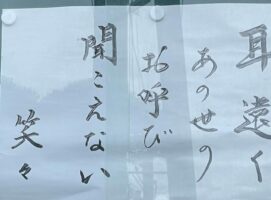 耳遠く
あの世の
お呼び
聞こえない
笑々